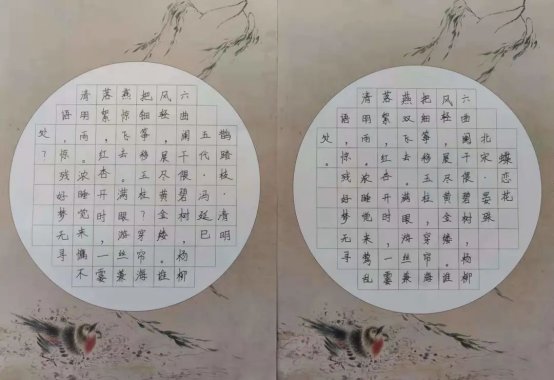 鹊踏枝·清明
五代·冯延巳
六曲阑干偎碧树，杨柳
风轻，展尽黄金缕。谁
把钿筝移玉柱？穿帘海
燕惊飞去。满眼游丝兼
落絮，红杏开时，一霎
清明雨。浓睡觉来，慵不
语，惊残好梦无寻
处？
蝶恋花
北宋·晏殊
六曲阑干偎碧树，杨柳
风轻，展尽黄金缕。谁
把钿筝移玉柱，穿帘海
燕双飞去。满眼，游丝兼
落絮，红杏开时，一霎
清明雨。浓睡觉来，莺乱
语，惊残好梦无寻
处。